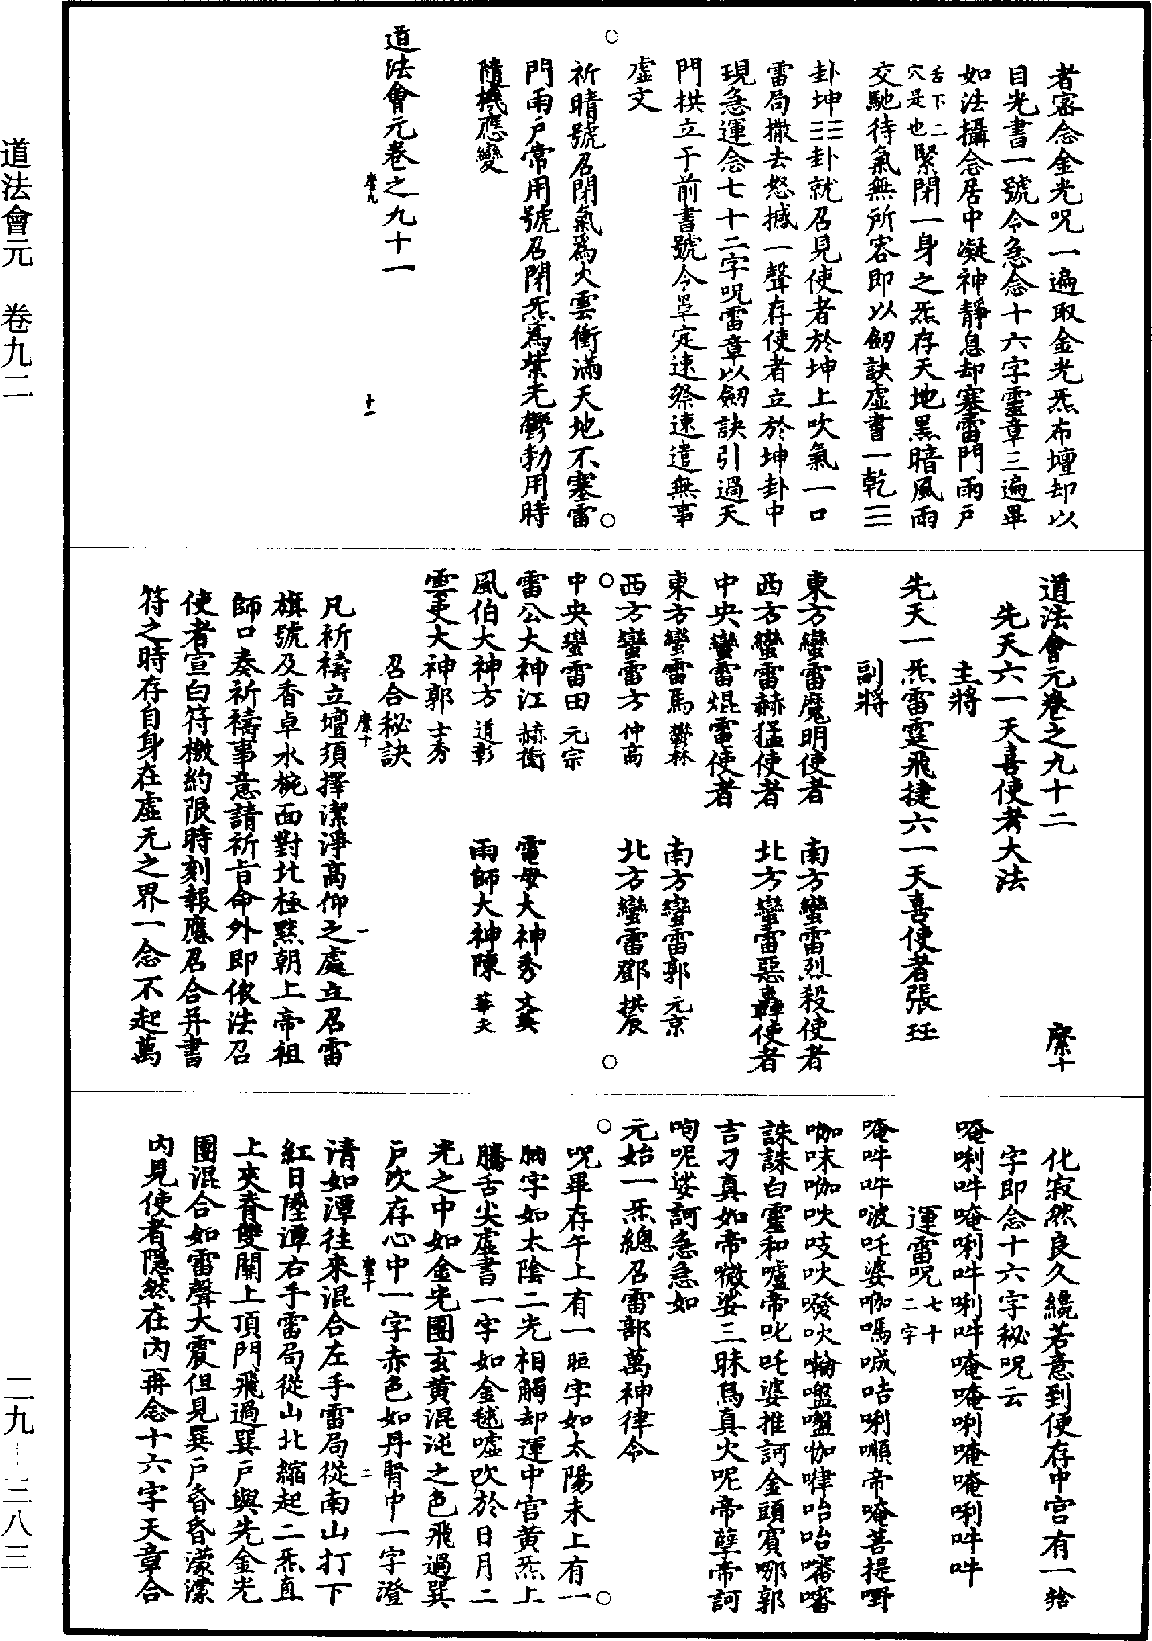 道法會元 卷九二
二九—三八三
者密念金光呪一遍取金光炁布壇却以
目光書一號令急念十六字靈章三遍畢
如法攝念居中凝神靜息却塞雷門雨戶
舌下二穴是也緊閉一身之炁存天地黑暗風雨
交馳待氣無所容即以劒訣虛書一乾☰
卦坤☷卦就召見使者於坤上吹氣一口
雷局撒去怒撼一聲存使者立於坤卦中
現急運念七十二字呪雷章以劒訣引過天
門拱立于前書號令罩定速祭速遣無事
虛文
祈晴號召閉氣爲火雲衝滿天地不塞雷
門雨戶常用號召閉炁爲紫光鬱勃用時
隨機應變
道法會元卷之九十一
席九 十一
道法會元卷之九十二 席十
先天六一天喜使者大法
主將
先天一炁雷霆飛捷六一天喜使者張珏
副將
東方蠻雷魔明使者 南方蠻雷烈殺使者
西方蠻雷赫猛使者 北方蠻雷惡轟使者
中央蠻雷焜雷使者
東方蠻雷馬鬱林 南方蠻雷郭元京
西方蠻雷方仲高 北方蠻雷鄧拱辰
中央蠻雷田元宗
雷公大神江赫衝 電母大神秀文英
風伯大神方道彰 雨師大神陳華夫
雲吏大神郭士秀
召合秘訣
席十 一
凡祈禱立壇須擇潔淨高仰之處立召雷
旗號及香卓水椀面對北極默朝上帝祖
師口奏祈禱事意請祈旨命外即依法召
使者宣白符檄約限時刻報應召合并書
符之時存自身在虛无之界一念不起萬
化寂然良久纔若意到便存中宮有一㹉
字即念十六字秘呪云
唵唎吽唵唎吽唎吽唵唵唎唵唵唎吽吽
運雷呪七十二字
唵吽吽啵吒婆咖嗎喊咭唎囒帝唵菩提嘢
咖呠咖吙吱吙㗶吙𠹌嚂嚂咖㖀咍咍嚌嚌
誅誅白靈和嚧帝叱吒婆推訶金頭賓哪郭
吉刁真如帝微娑三昧焉真火呢帝孽帝訶
呴呢娑訶急急如
元始一炁總召雷部萬神律令
呪畢存午上有一䀍字如太陽未上有一
䏚字如太陰二光相觸却運中宮黃炁上
騰舌尖虛書一字如金毬噓吹於日月二
光之中如金光圈玄黃混沌之色飛過巽
戶吹存心中一字赤色如丹腎中一字澄
席十 二
清如潭往來混合左手雷局從南山打下
紅日墜潭右手雷局從山北縮起二炁直
上夾脊雙關上頂門飛過巽戶與先金光
團混合如雷聲大震但見巽戶昏昏濛濛
內見使者隱然在內再念十六字天章合